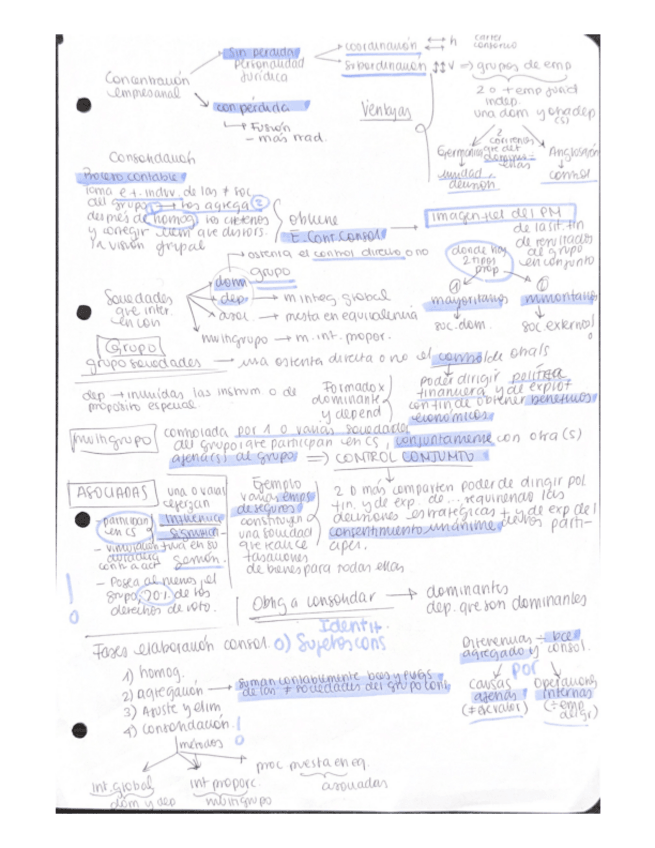 Concentración empresarial
sin pérdida personalidad jurídica
coordinación h cartel consorcio
subordinación v ⇒ grupos de emp
2 o + emp juríd indep.
una dom y otra dep (s)
con pérdida
↳ Fusión
Ventajas
2 corrientes
Germánica
unidad decisión
Anglosajón
control
Consolidación
Proceso contable
toma e + indiv. de las ≠ soc
del grupo → los agrega ②
después de homog. los criterios
y corregir
la visión grupal
obtiene
E. Cont. Consol
Imagen fiel del PM
de la sit. fin
de resultados
del grupo
en conjunto
donde hay 2 tipos prop
① mayoritarios
soc. dom.
② minoritarios
soc external
→ ostenta el control directo o no
grupo
Sociedades que inter. en con
dom
dep → m integ global
asoc. → m esta en equivalencia
multigrupo → m. int. propor.
Grupo
grupo sociedades → una ostenta directa o no el control de otra/s
dep → incluidas las instrum. o de
propósito especial
Formado x
dominante
y depend
poder dirigir política
financiera y de explot
con fin de obtener beneficios
económicos
multigrupo
controlada por 1 o varias sociedades
del grupo que participan en CS, conjuntamente con otra (s)
ajena(s) al grupo ⇒ CONTROL CONJUNTO
2 o más comparten poder de dirigir pol
fin. y de exp. de ... requiriendo las
decisiones estratégicas + y de exp del
consentimiento unánime de los parti-
ciper.
ASOCIADAS
una o varias
ejerzan
influencia
signific.
en su
gestión.
- participan en CS
- vinculación duradera
contr a act
- Posea al menos, el
grupo, 20% de los
derechos de voto.
Ejemplo
varias emps
de seguros
constituyen
una sociedad
que realice
tasaciones
de bienes para todas ellas
Oblig a consolidar → dominantes
dep. que son dominantes
Identif.
Fases elaboración consol. 0) Sujetos cons
1) homog.
2) agregación → suman contablemente bces y pygs
de las ≠ sociedades del grupo cont
3) Ajuste y elim
4) consolidación
métodos
int. global
dom y dep
int proporc.
multigrupo
proc puesta en eq.
asociadas
Diferencias ÷ bce
agregado y consol.
por
causas
ajenas
(≠ es valor)
operaciones
internas
(÷ emp
del gr)